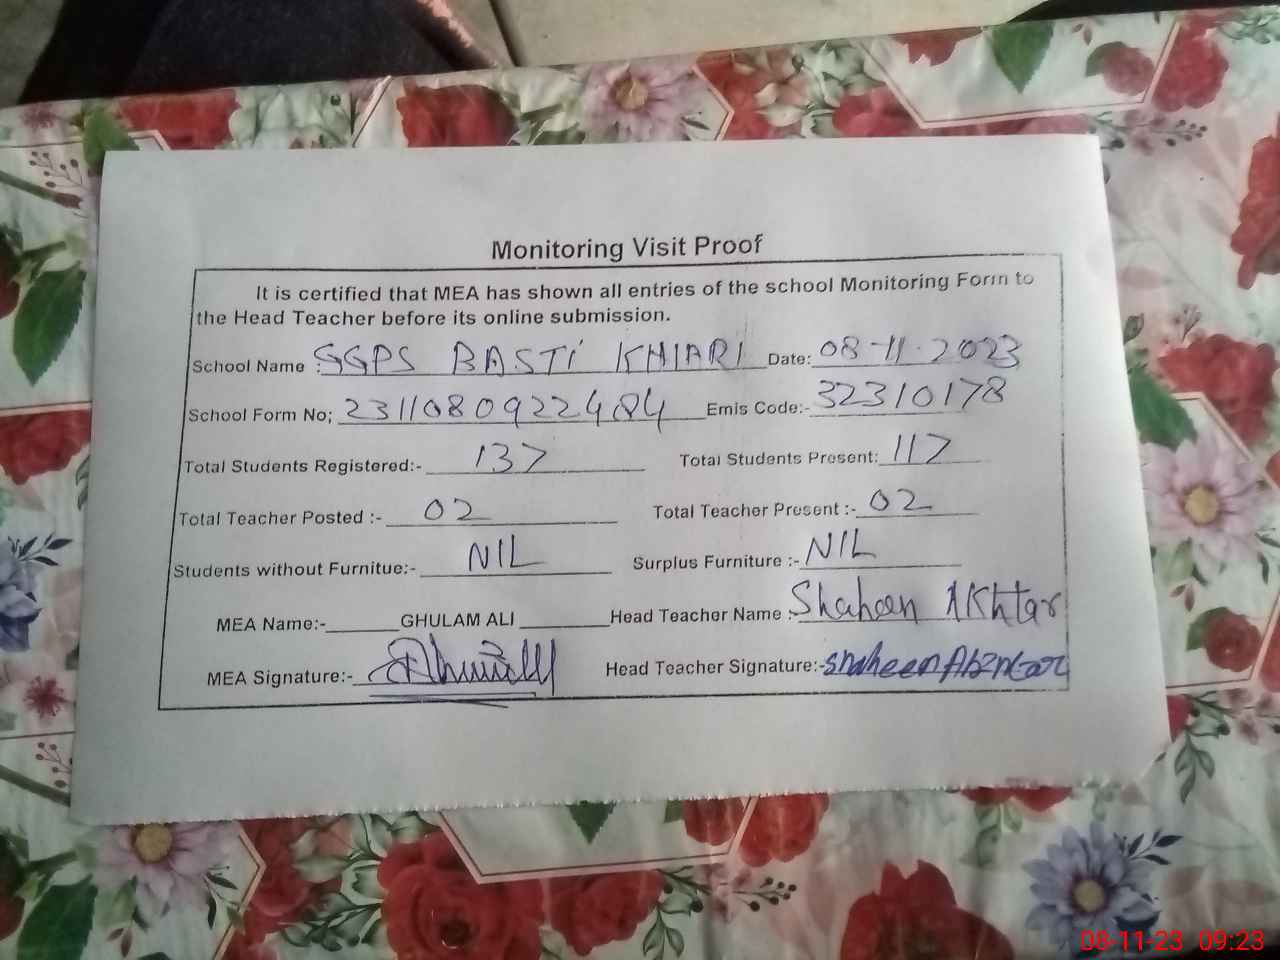 Monitoring Visit Proof
It is certified that MEA has shown all entries of the school Monitoring Form to
the Head Teacher before its online submission.
School Name : GGPS BASTI KHIARI Date: 08-11-2023
School Form No; 2311080922484 Emis Code:- 32310178
Total Students Registered:- 137 Total Students Present: 117
Total Teacher Posted :- 02 Total Teacher Present :- 02
Students without Furnitue:- NIL Surplus Furniture :- NIL
MEA Name:- GHULAM ALI Head Teacher Name :- Shaheen Akhtar
MEA Signature:- Head Teacher Signature:- Shaheen Akhtar
08-11-23 09:23